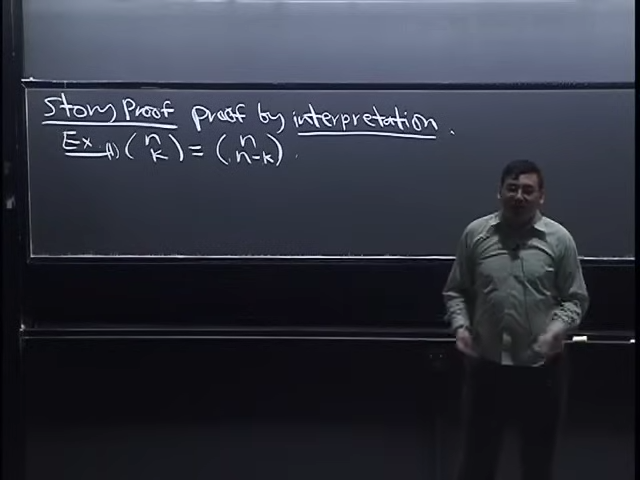 Story Proof proof by interpretation.
Ex. (1) (n k) = (n n-k).